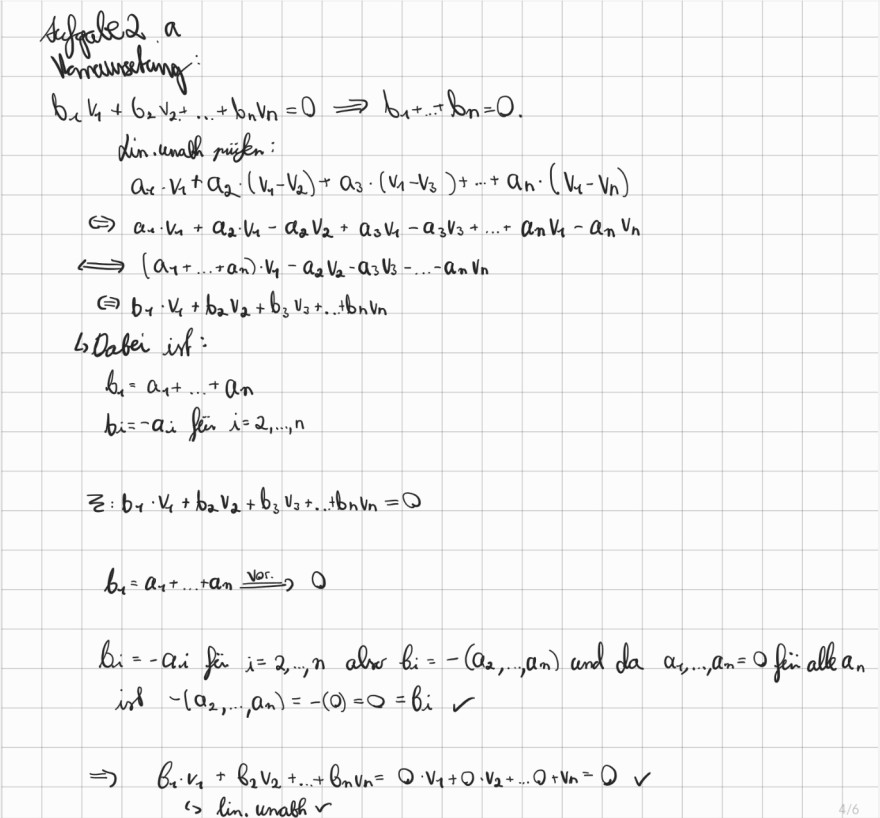 Aufgabe 2 a
Vorraussetzung:
b₁v₁ + b₂v₂+ ...+bₙvₙ=0 ⟹ b₁+...+bₙ=0.
Lin.unabh prüfen:
a₁·v₁+a₂·(v₁-v₂)+ a₃·(v₁-v₃)+...+ aₙ·(v₁-vₙ)
⇔ a₁·v₁ + a₂·v₁ - a₂v₂ + a₃v₁ - a₃v₃ +...+ aₙv₁ - aₙvₙ
⟺ (a₁+...+aₙ)·v₁ - a₂v₂-a₃v₃-...-aₙvₙ
⇔ b₁·v₁+b₂v₂+b₃v₃+...+bₙvₙ
↳ Dabei ist:
b₁= a₁+...+aₙ
bᵢ=-aᵢ für i=2,...,n
Z: b₁·v₁+b₂v₂+b₃v₃+...+bₙvₙ=0
b₁= a₁+...+aₙ ⟹(Vor.) 0
bᵢ=-aᵢ für i=2,...,n also bᵢ= -(a₂,...,aₙ) und da a₁,...,aₙ=0 für alle aₙ
ist -(a₂,...,aₙ)= -(0)=0=bᵢ ✓
⟹ b₁·v₁ + b₂v₂+...+bₙvₙ= 0·v₁+0·v₂+...0+vₙ=0 ✓
↳ lin. unabh ✓
4/6